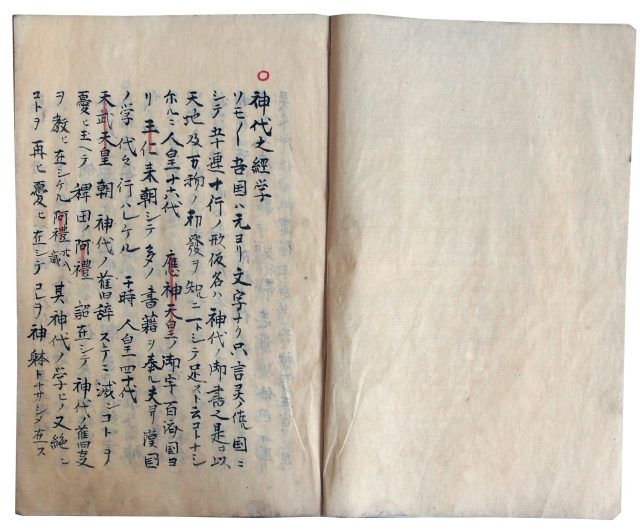 神代之經学
ソモ〳〵吾国ハ元ヨリ文字ナク只言灵ノ佐国ニ
シテ五十連十行ノ形仮名ハ神代ノ御書之是ヲ以
天地及万物ノ初發ヲ知ニ一トシテ足ズト云コトナシ
ホルニ人皇十六代 應神天皇ノ御宇百済国ヨ
リ王仁来朝シテ多ノ書籍ヲ奉ル夫ヨリ漢国
ノ学代々行ハレケル 于時人皇四十代
天武天皇朝神代ノ舊辞ステニ滅シコトヲ
憂ヒ玉ヘテ 稗田ノ阿禮 詔在シテ神代ノ舊支
ヲ教ヒ在シケル阿禮 其神代ノ学ヒノ又絶ン
コトヲ再ヒ憂ヒ在シテコレヲ神躰トナサシメ在ス